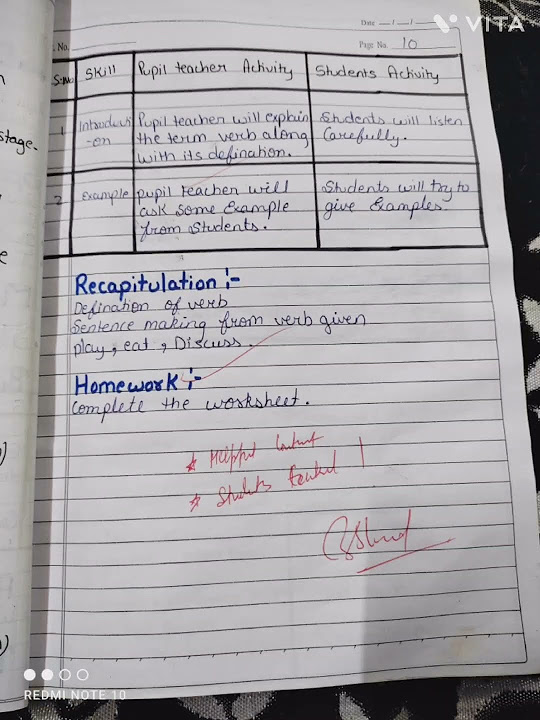 VITA
Date __/__/__
No.
Page No. 10
S:No Skill Pupil teacher Activity Students Activity
1 Introducti Pupil teacher will explain Students will listen
-on the term verb along Carefully.
with its defination.
2 Example pupil teacher will Students will try to
ask some Example give Examples.
from Students.
stage-
Recapitulation :-
Defination of verb
Sentence making from verb given
play, eat, Discuss.
Homework :-
Complete the worksheet.
* Helpful Content
* Students
REDMI NOTE 10